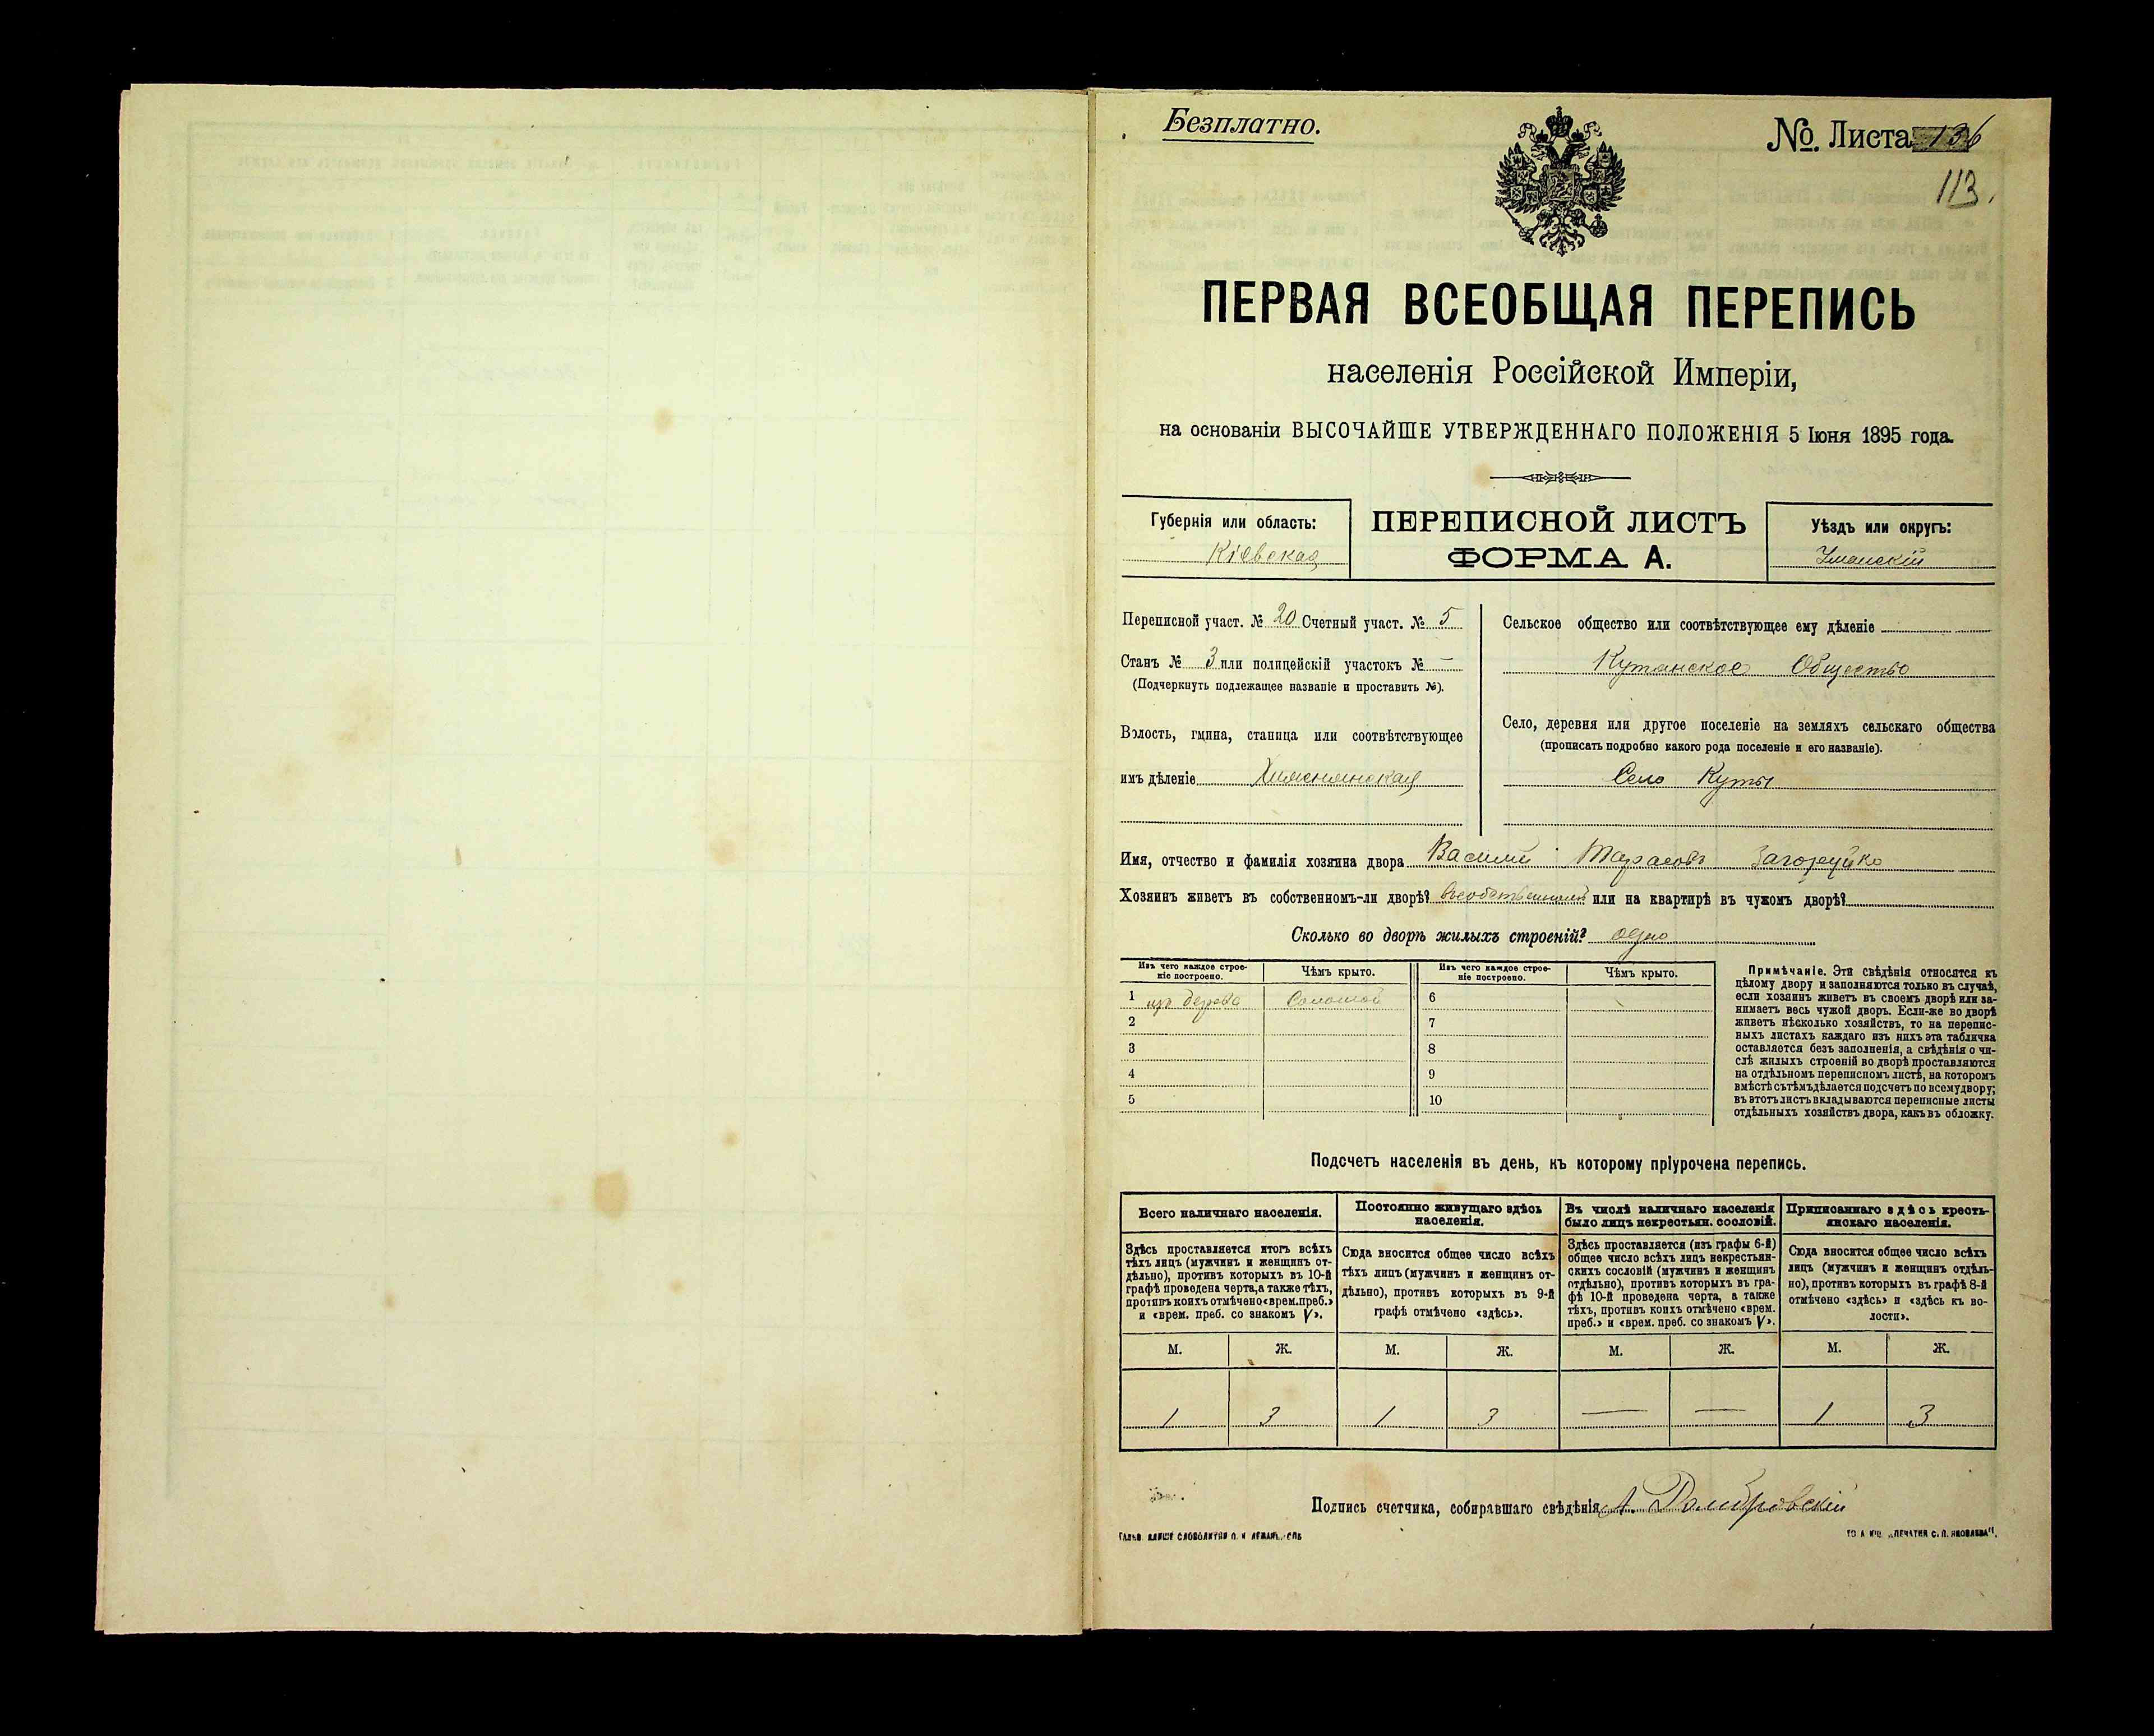 Безплатно.
№. Листа 136
113.
ПЕРВАЯ ВСЕОБЩАЯ ПЕРЕПИСЬ
населенія Россійской Имперіи,
на основаніи ВЫСОЧАЙШЕ УТВЕРЖДЕННАГО ПОЛОЖЕНІЯ 5 Іюня 1895 года.
Губернія или область:
Кіевская
ПЕРЕПИСНОЙ ЛИСТЪ
ФОРМА А.
Уѣздъ или округъ:
Уманскій
Переписной участ. № 20 Счетный участ. № 5
Станъ № 3 или полицейскій участокъ № —
(Подчеркнуть подлежащее названіе и проставить №).
Волость, гмина, станица или соотвѣтствующее
имъ дѣленіе
Сельское общество или соотвѣтствующее ему дѣленіе
Кутянское Общество
Село, деревня или другое поселеніе на земляхъ сельскаго общества
(прописать подробно какого рода поселеніе и его названіе).
Село Куты
Имя, отчество и фамилія хозяина двора Василий Тарасовъ Загоруйко
Хозяинъ живетъ въ собственномъ-ли дворѣ? или на квартирѣ въ чужомъ дворѣ?
Сколько во дворѣ жилыхъ строеній? одно
Изъ чего каждое строе-
ніе построено.
Чѣмъ крыто.
1 изъ дерева Соломой
2
3
4
5
Изъ чего каждое строе-
ніе построено.
Чѣмъ крыто.
6
7
8
9
10
Примѣчаніе. Эти свѣдѣнія относятся къ
цѣлому двору и заполняются только въ случаѣ,
если хозяинъ живетъ въ своемъ дворѣ или за-
нимаетъ весь чужой дворъ. Если-же во дворѣ
живетъ нѣсколько хозяйствъ, то на перепис-
ныхъ листахъ каждаго изъ нихъ эта табличка
оставляется безъ заполненія, а свѣдѣнія о чи-
слѣ жилыхъ строеній во дворѣ проставляются
на отдѣльномъ переписномъ листѣ, на которомъ
вмѣстѣ съ тѣмъ дѣлается подсчетъ по всему двору;
въ этотъ листъ вкладываются переписные листы
отдѣльныхъ хозяйствъ двора, какъ въ обложку.
Подсчетъ населенія въ день, къ которому пріурочена перепись.
Всего наличнаго населенія.
Здѣсь проставляется итогъ всѣхъ
тѣхъ лицъ (мужчинъ и женщинъ от-
дѣльно), противъ которыхъ въ 10-й
графѣ проведена черта, а также тѣхъ,
противъ коихъ отмѣчено «врем. преб.»
и «врем. преб. со знакомъ V».
Постоянно живущаго здѣсь
населенія.
Сюда вносится общее число всѣхъ
тѣхъ лицъ (мужчинъ и женщинъ от-
дѣльно), противъ которыхъ въ 9-й
графѣ отмѣчено «здѣсь».
Въ числѣ наличнаго населенія
было лицъ некрестьян. сословій.
Здѣсь проставляется (изъ графы 6-й)
общее число всѣхъ лицъ некрестьян-
скихъ сословій (мужчинъ и женщинъ
отдѣльно), противъ которыхъ въ гра-
фѣ 10-й проведена черта, а также
тѣхъ, противъ коихъ отмѣчено «врем.
преб.» и «врем. преб. со знакомъ V».
Приписаннаго здѣсь кресть-
янскаго населенія.
Сюда вносится общее число всѣхъ
лицъ (мужчинъ и женщинъ отдѣль-
но), противъ которыхъ въ графѣ 8-й
отмѣчено «здѣсь» и «здѣсь къ во-
лости».
М. Ж. М. Ж. М. Ж. М. Ж.
1 3 1 3 — — 1 3
Подпись счетчика, собиравшаго свѣдѣнія А. Домбровскій